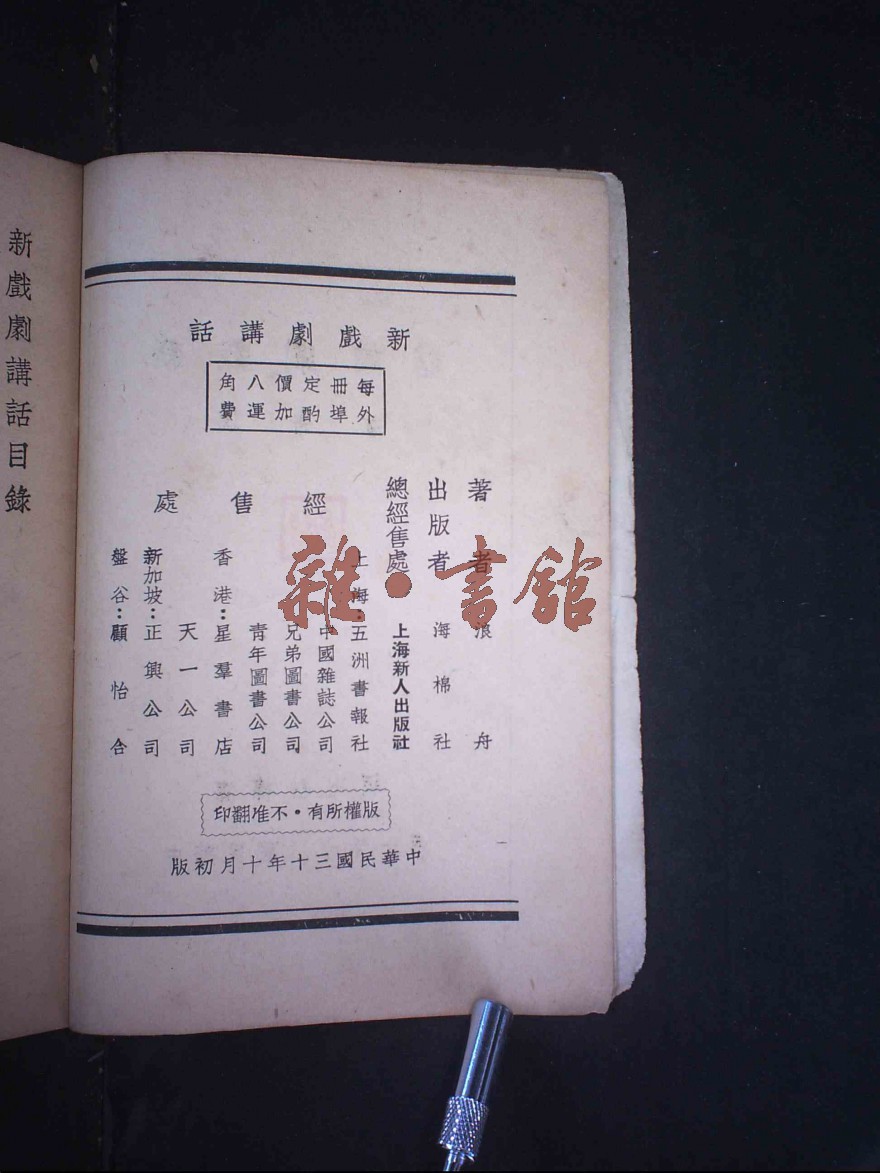 新戲劇講話
每冊定價八角
外埠酌加運費
著者 浪舟
出版者 海棉社
總經售處 上海新人出版社
經售處
上海：五洲書報社
中國雜誌公司
兄弟圖書公司
青年圖書公司
香港：星羣書店
天一公司
新加坡：正興公司
盤谷：顧怡合
版權所有・不准翻印
中華民國三十年十月初版
新戲劇講話目錄
雜・書館